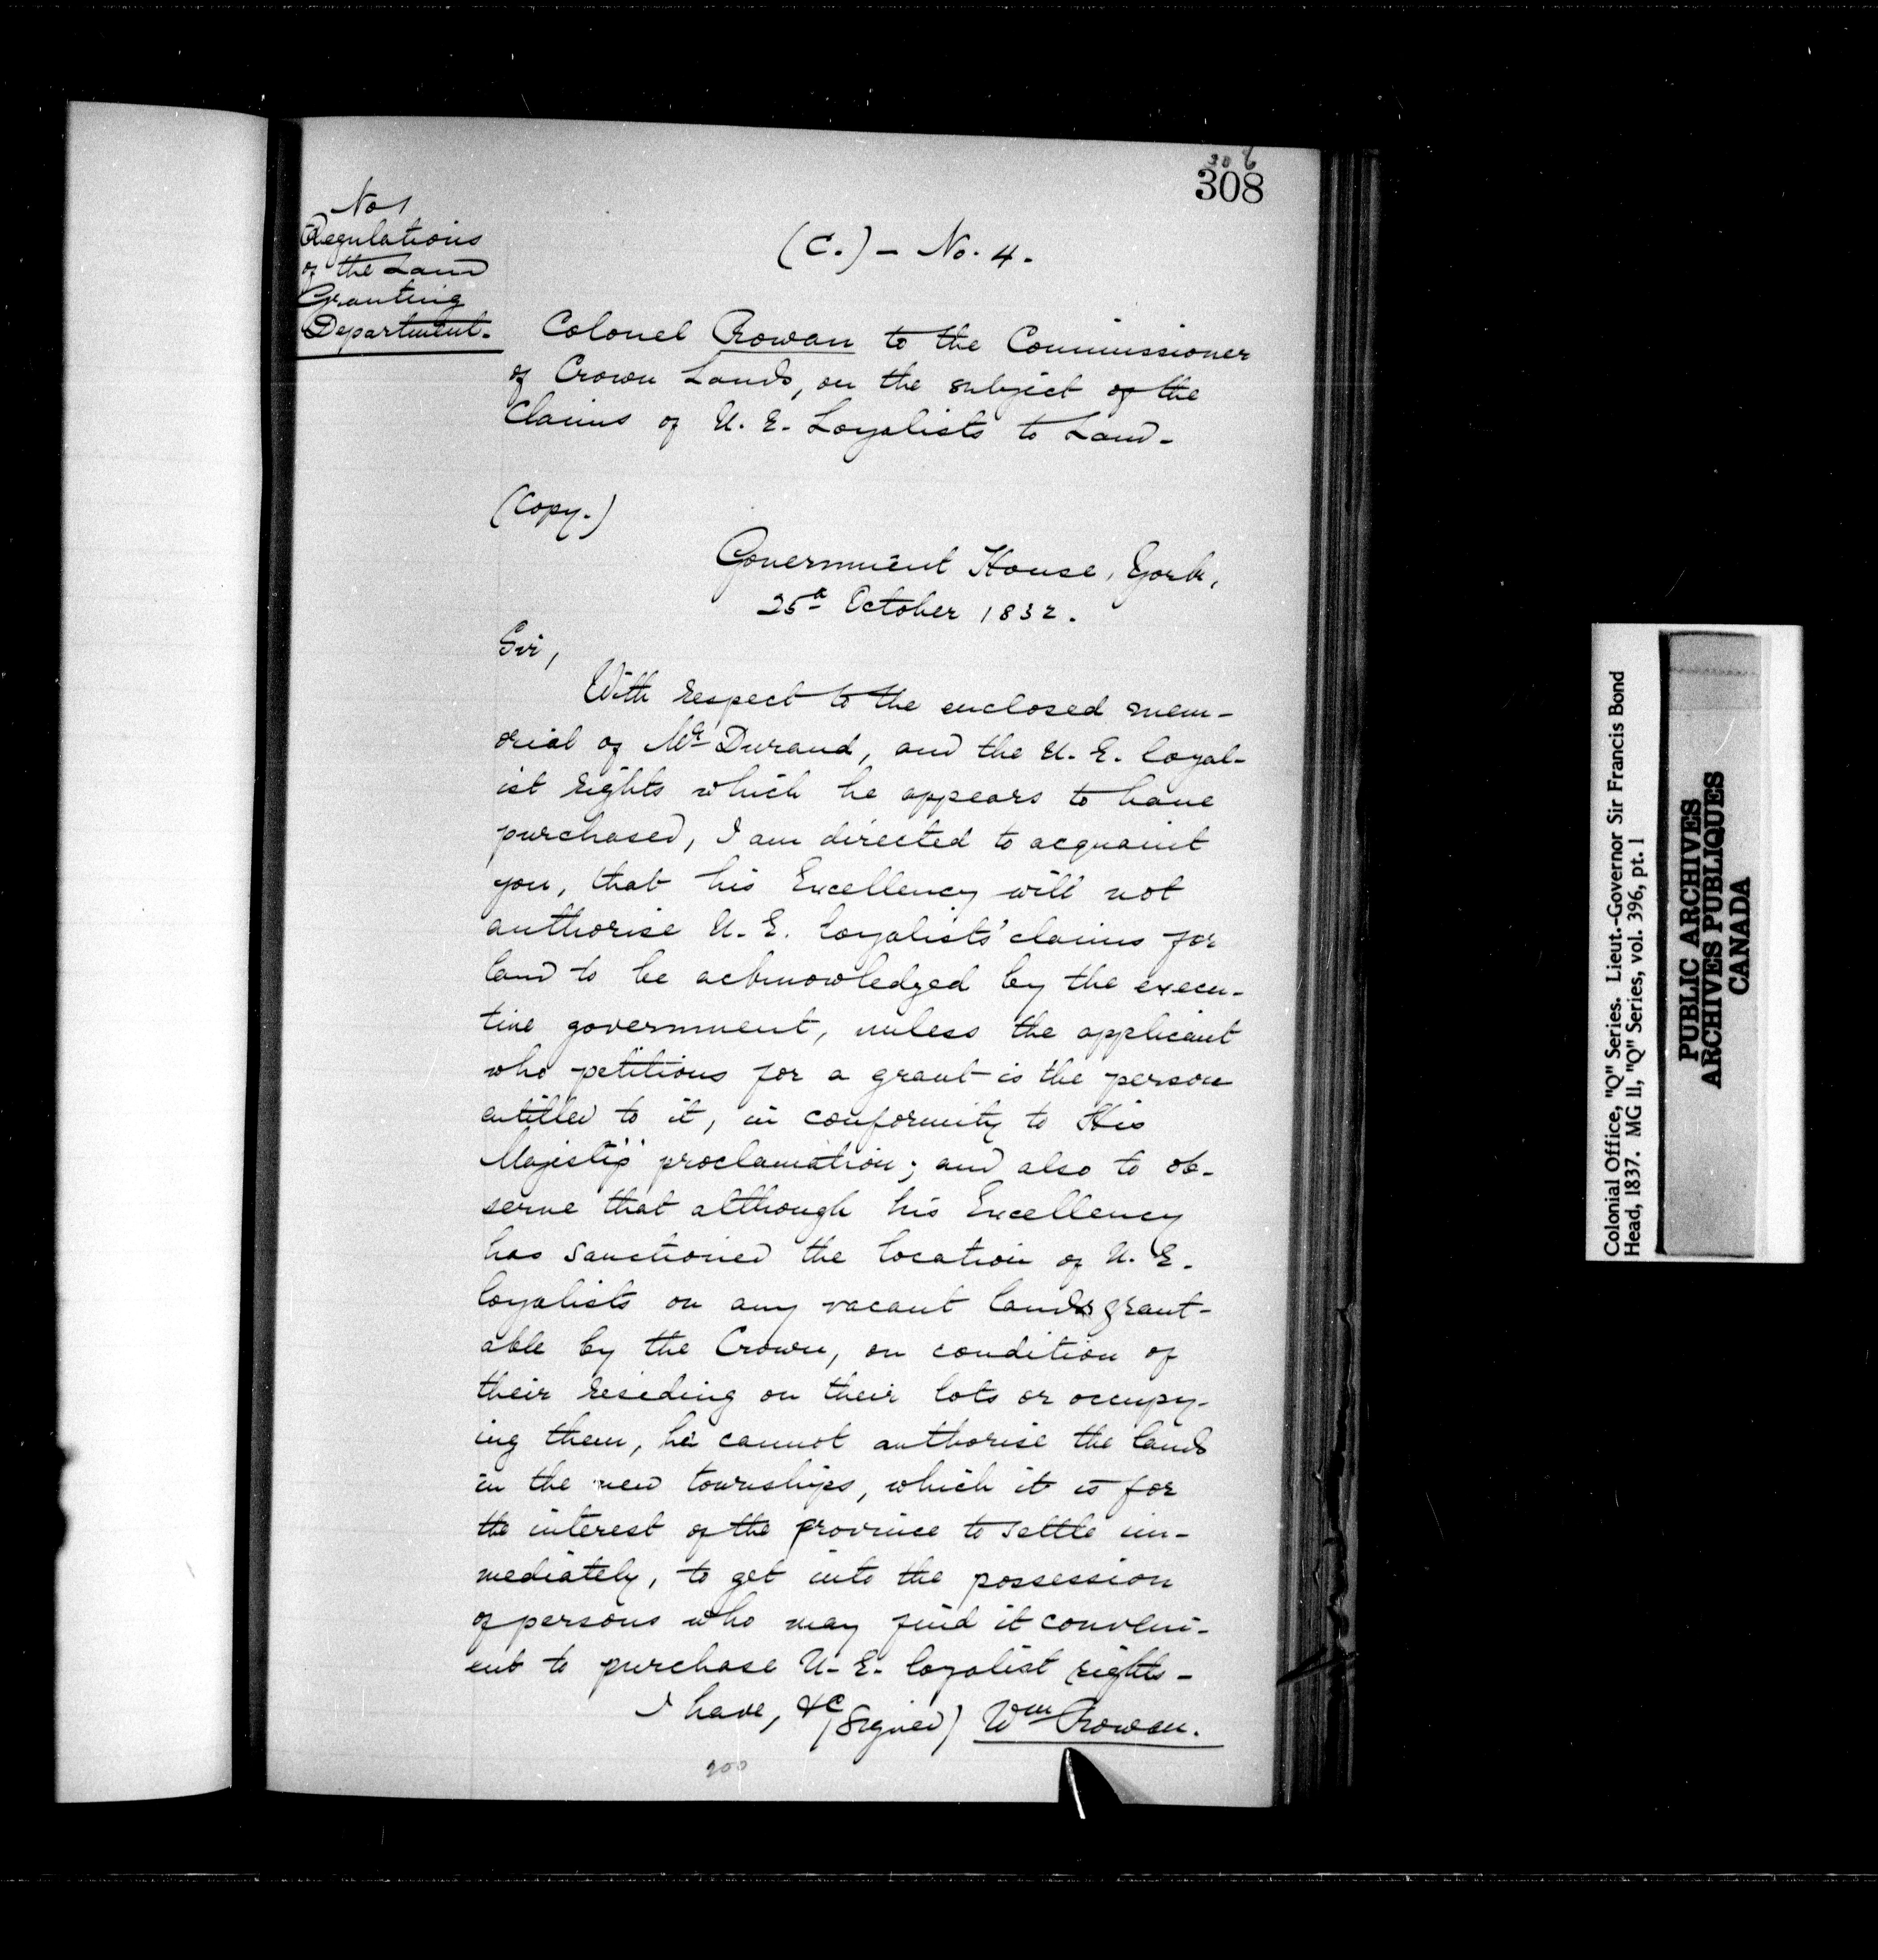 306
308
No 1
Regulations
of the Land
Granting
Department.
(C.) - No. 4.
Colonel Rowan to the Commissioner
of Crown Lands, on the subject of the
Claims of U. E. Loyalists to Land-
(Copy.)
Government House, York,
25th October 1832.
Sir,
With respect to the enclosed mem-
orial of Mr Durand, and the U. E. loyal-
ist rights which he appears to have
purchased, I am directed to acquaint
you, that his Excellency will not
authorise U. E. loyalists' claims for
land to be acknowledged by the execu-
tive government, unless the applicant
who petitions for a grant is the person
entitled to it, in conformity to His
Majesty's proclamation; and also to ob-
serve that although his Excellency
has sanctioned the location of U. E.
loyalists on any vacant lands grant-
able by the Crown, on condition of
their residing on their lots or occupy-
ing them, he cannot authorise the lands
in the new townships, which it is for
the interest of the province to settle im-
mediately, to get into the possession
of persons who may find it conveni-
ent to purchase U. E. loyalist rights-
I have, &c
(Signed) Wm Rowan.
200
Colonial Office, "Q" Series. Lieut.-Governor Sir Francis Bond
Head, 1837. MG 11, "Q" Series, vol. 396, pt. 1
PUBLIC ARCHIVES
ARCHIVES PUBLIQUES
CANADA